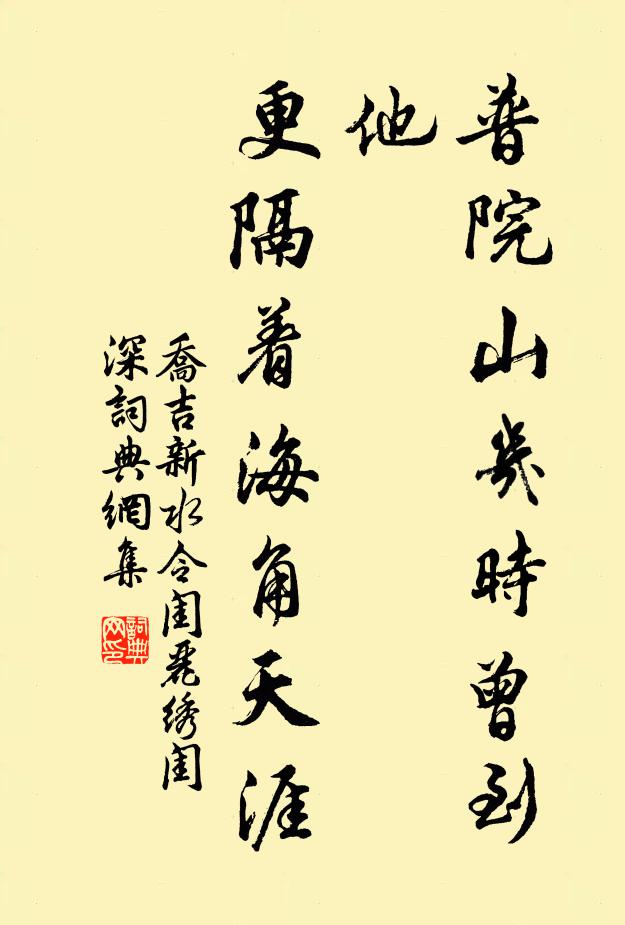 普院山幾時曾到
他
更隔着海角天涯
喬吉新水令閨麗綉閨
深詞典網集
詞典
网印